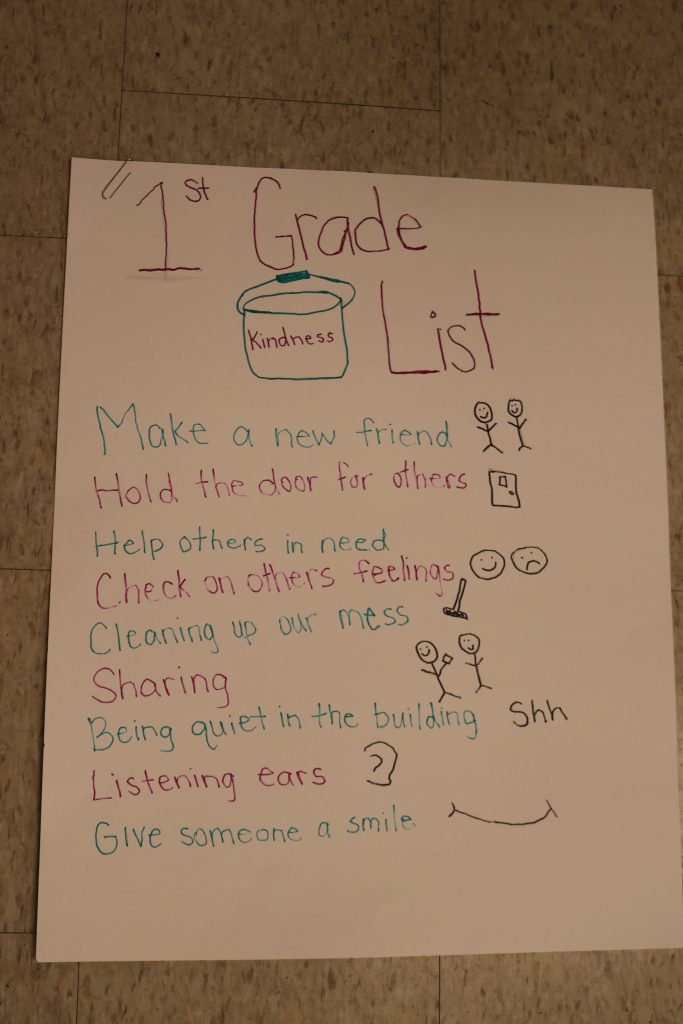 1st Grade
Kindness List
Make a new friend
Hold the door for others
Help others in need
Check on others feelings
Cleaning up our mess
Sharing
Being quiet in the building Shh
Listening ears
Give someone a smile